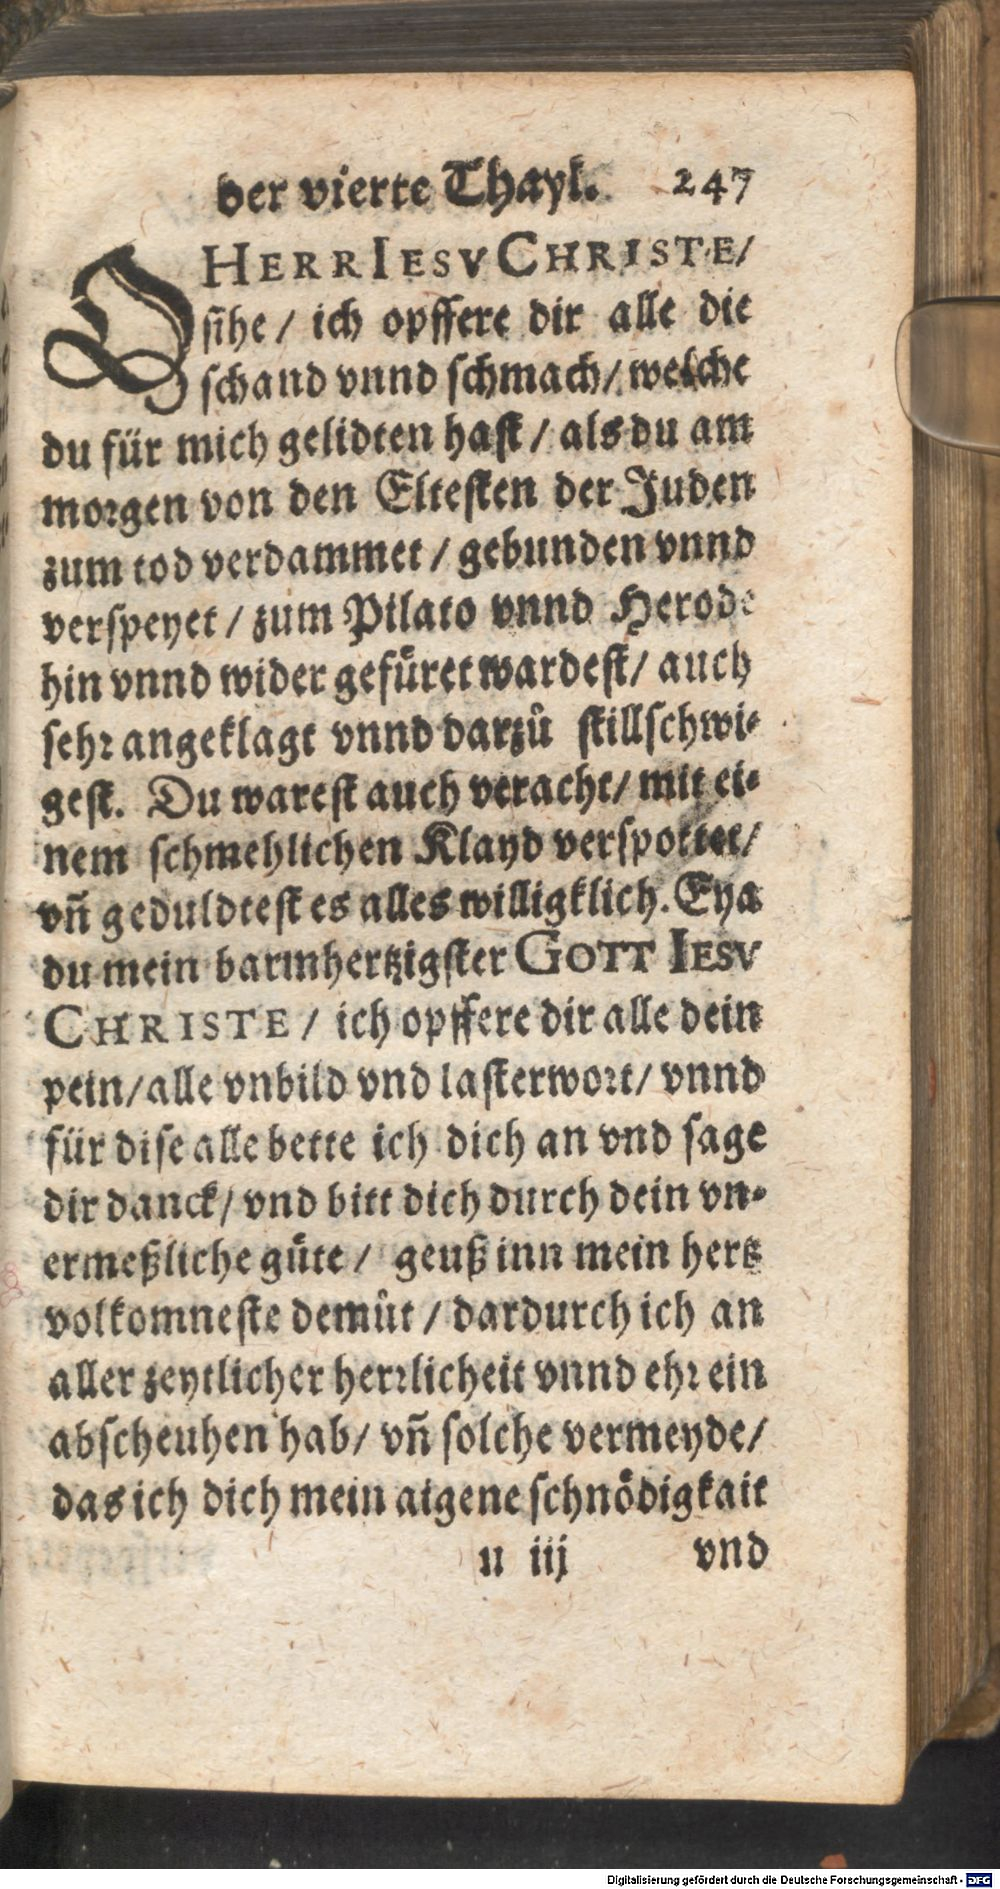 der vierte Thayl. 247
O HERR IESV CHRISTE/
sihe / ich opffere dir alle die
schand vnnd schmach/ welche
du für mich gelidten hast / als du am
morgen von den Eltesten der Juden
zum tod verdammet / gebunden vnnd
verspeyet / zum Pilato vnnd Herode
hin vnnd wider gefüret wardest/ auch
sehr angeklagt vnnd darzů stillschwi-
gest. Du warest auch veracht/ mit ei-
nem schmehlichen Klayd verspottet/
vñ geduldtest es alles willigklich. Eya
du mein barmhertzigster GOTT IESV
CHRISTE / ich opffere dir alle dein
pein/ alle vnbild vnd lasterwort/ vnnd
für dise alle bette ich dich an vnd sage
dir danck/ vnd bitt dich durch dein vn-
ermeßliche güte / geuß inn mein hertz
volkomneste demůt / dardurch ich an
aller zeytlicher herrlicheit vnnd ehr ein
abscheuhen hab/ vñ solche vermeyde/
das ich dich mein aigene schnödigkait
u iij vnd
Digitalisierung gefördert durch die Deutsche Forschungsgemeinschaft - DFG